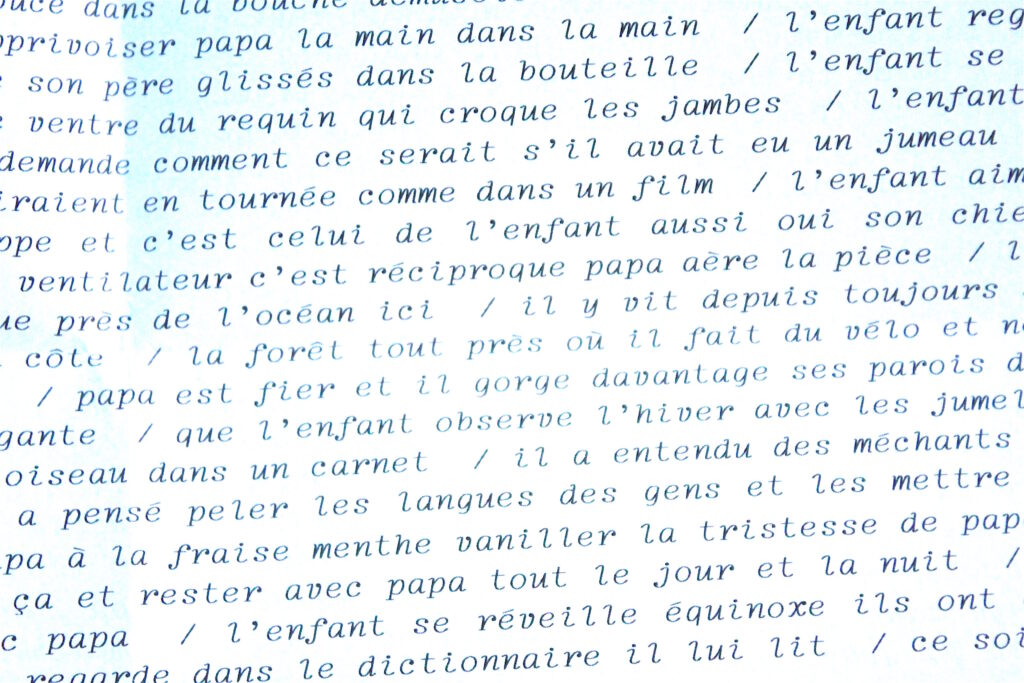 dans la bouche
apprivoiser papa la main dans la main / l'enfant reg
son père glissés dans la bouteille / l'enfant se
ventre du requin qui croque les jambes / l'enfant
demande comment ce serait s'il avait eu un jumeau
iraient en tournée comme dans un film / l'enfant aim
ppe et c'est celui de l'enfant aussi oui son chie
ventilateur c'est réciproque papa aère la pièce / l
ue près de l'océan ici / il y vit depuis toujours
côte / la forêt tout près où il fait du vélo et n
/ papa est fier et il gorge davantage ses parois d
gante / que l'enfant observe l'hiver avec les jumel
oiseau dans un carnet / il a entendu des méchants
a pensé peler les langues des gens et les mettre
pa à la fraise menthe vaniller la tristesse de pap
ça et rester avec papa tout le jour et la nuit /
c papa / l'enfant se réveille équinoxe ils ont
regarde dans le dictionnaire il lui lit / ce soi